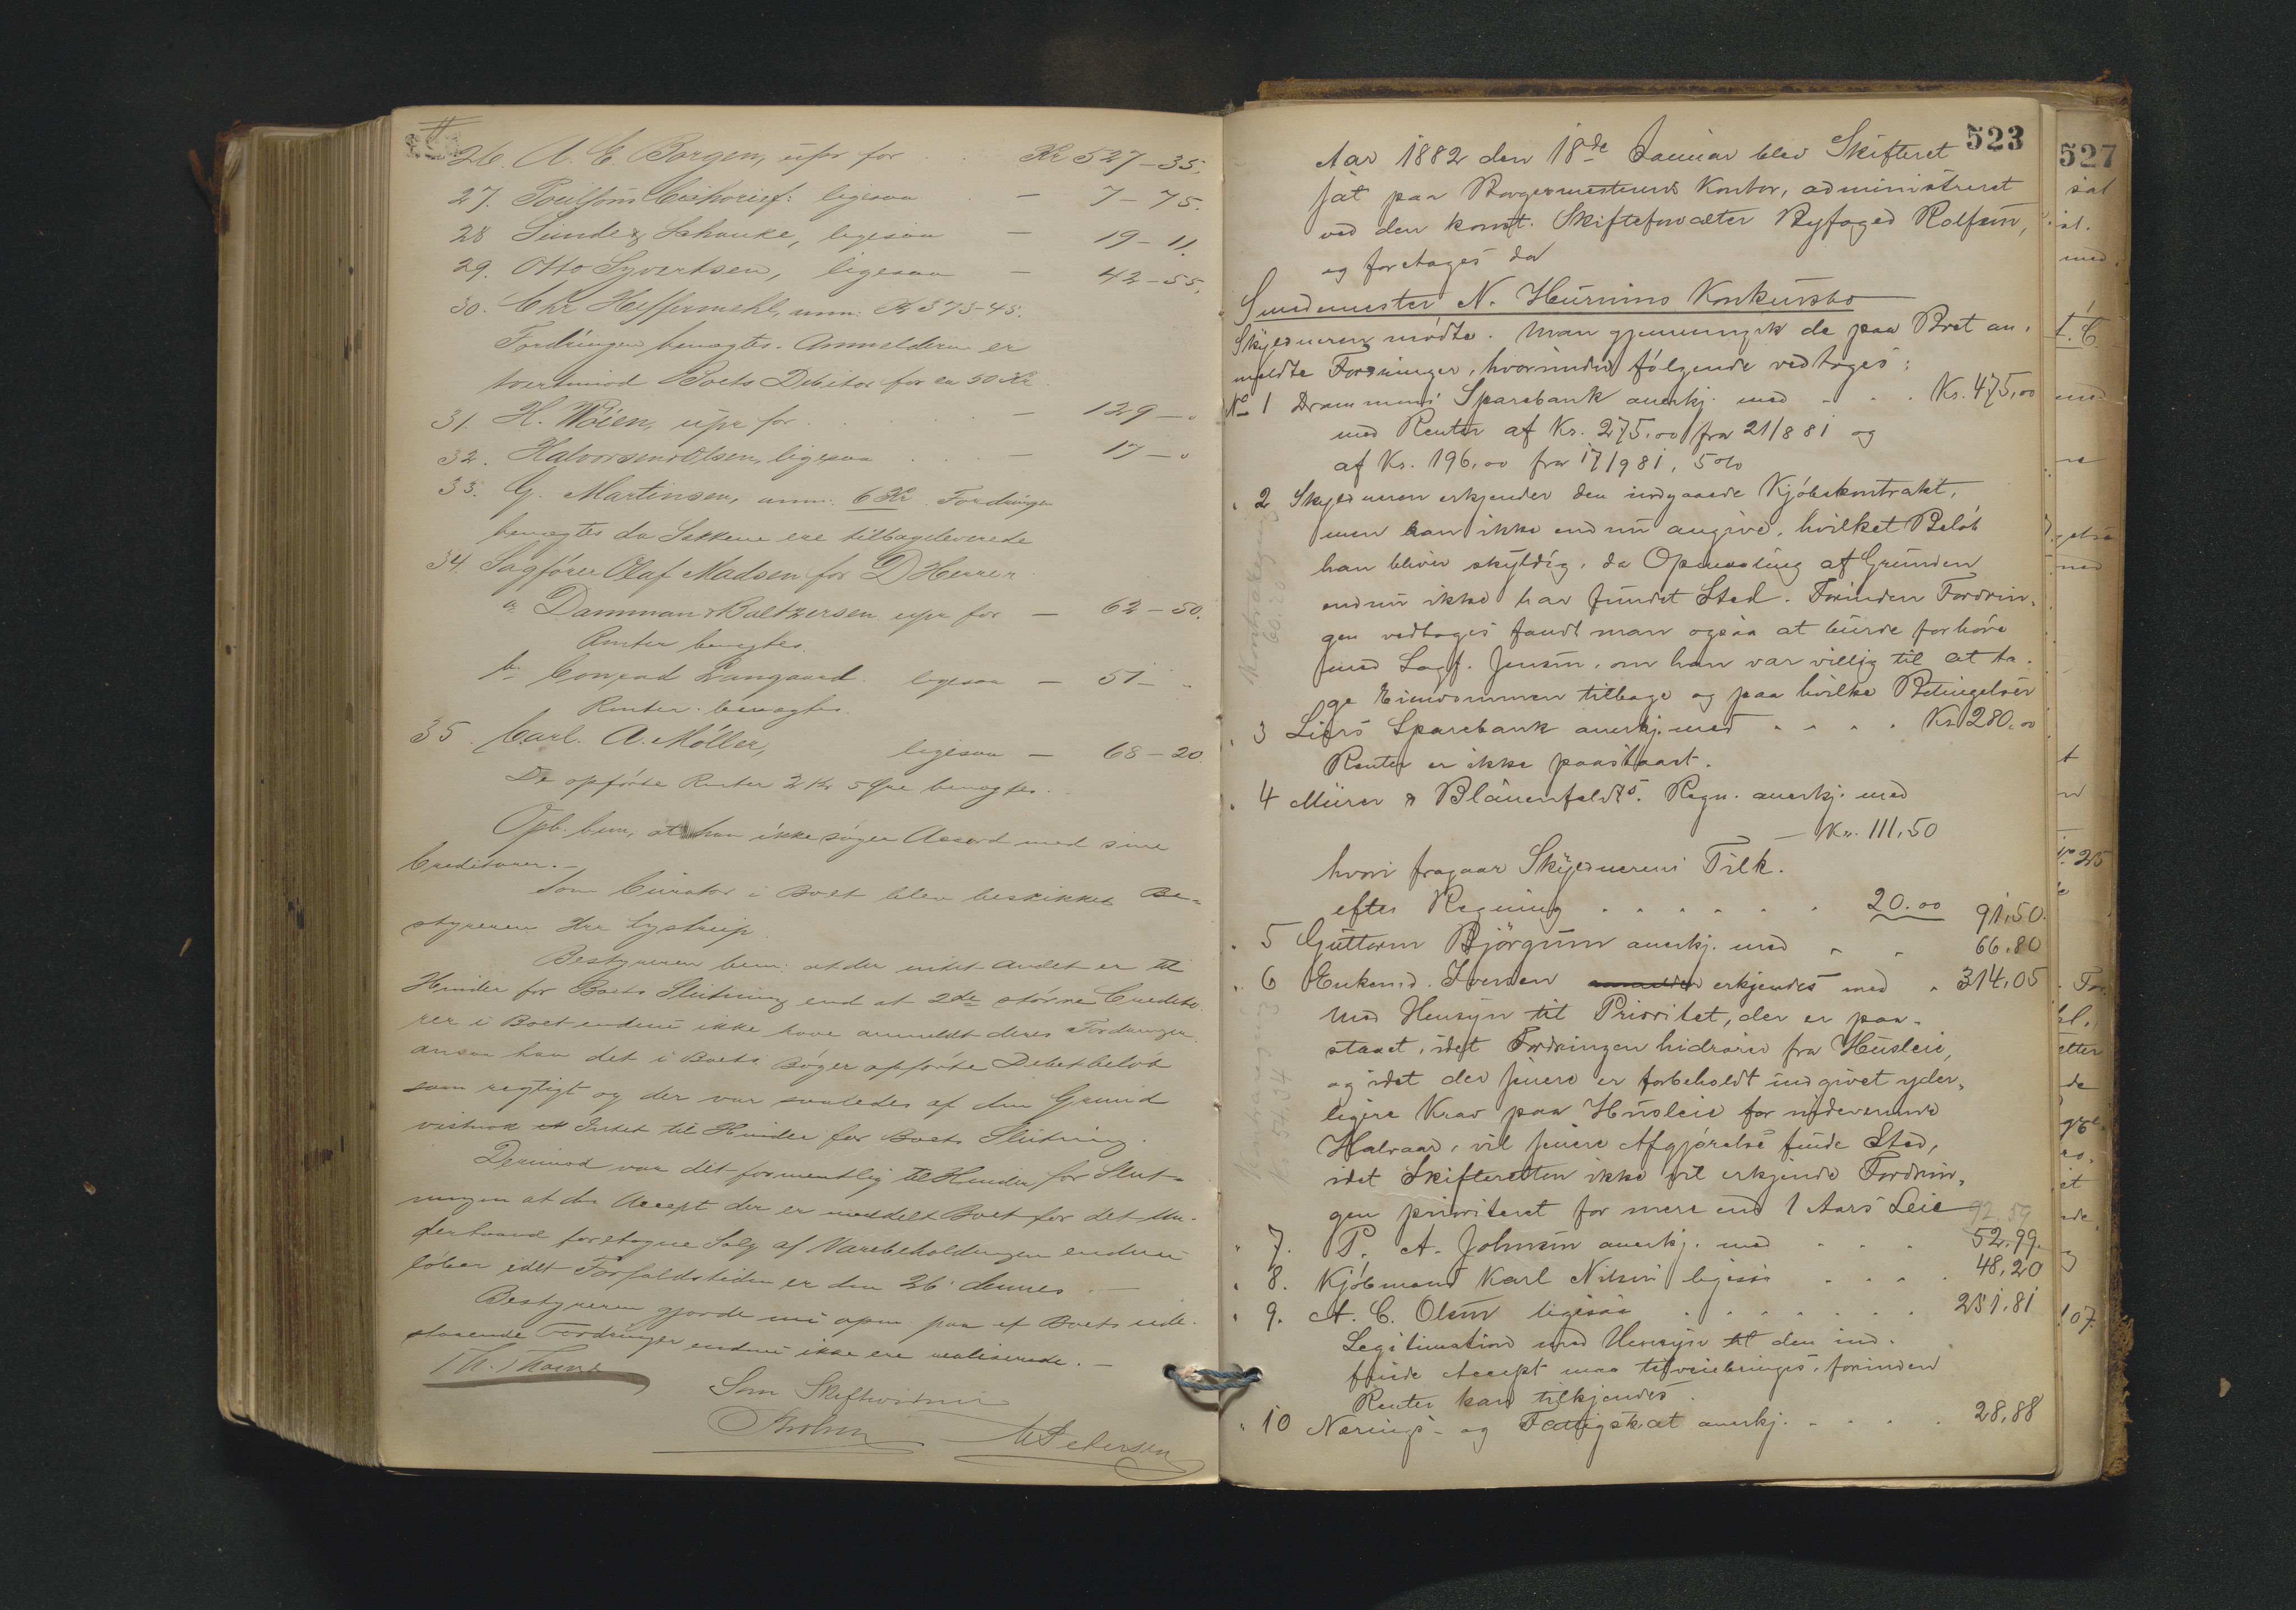 26. A. E. Borgen, upr for . . Kr 527-35.
27. Poulsons Cichorief: ligesaa - 7-75.
28 Sunde & Schanke, ligesaa - 19-11.
29. Otto Syvertsen, ligesaa - 42-55.
30. Chr Heffermehl, anm: Kr 373-45.
Fordringen benægtes. Anmelderen er
tvertimod Boets Debitor for ca 50 Kr.
31. H. Wöien, upr for . . . - 129-"
32. Halvorsen & Olsen, ligesaa . . - 17-"
33. G. Martinsen, anm: 6 Kr. Fordringen
benægtes da Sækkene ere tilbageleverede
34. Sagfører Olaf Madsen for D'Herrer
a Damman & Baltzersen upr for - 62-50.
Renter benægtes.
b. Conrad Langaard. ligesaa - 51- -
Renter benægtes.
35. Carl. A. Möller, ligesaa - 68-20.
De opførte Renter 2 Kr 5 Øre benægtes.
Opb. bem, at han ikke søger Accord med sine
Creditorer.-
Som Curator i Boet blev beskikket Be-
styreren Hr Lystrup.
Bestyreren bem: at der intet andet er til
Hinder for Boets Slutning end at 2de større Credito
rer i Boet endnu ikke have anmeldt deres Fordringer
ansaa han det i Boets Bøger opførte Debetbeløb
som rigtigt og der var saaledes af den Grund
vistnok Intet til Hinder for Boets Slutning.
Derimod var det formentlig til Hinder for Slut-
ningen at den Accept der er meddelt Boet for det un-
derhaand foretagne Salg af Varebeholdningen endnu
løber idet Forfaldstiden er den 26' dennes.-
Bestyreren gjorde nu opm. paa at Boets ude-
staaende Fordringer endnu ikke ere realiserede.-
Th. Thorne
Som Skiftevidner
Brohm M Pedersen
523
Aar 1882 den 18de Januar blev Skifteret
sat paa Borgermesterens Kontor, administreret
ved den konst. Skifteforvalter Byfoged Rolfsen,
og foretages da
Smedemester N. Hurums Konkursbo
Skyldneren mødte. Man gjennemgik de paa Boet an-
meldte Fordringer, hvorunder følgende vedtoges:
No 1 Drammens Sparebank anerkj. med - - . Kr. 475,00
med Renter af Kr. 275.00 fra 21/8 81 og
af Kr. 196.00 fra 17/9 81, 5%
" 2 Skyldneren erkjender den indgaaede Kjøbekontrakt,
men kan ikke endnu angive, hvilket Beløb
han bliver skyldig, da Opmaaling af Grunden
endnu ikke har fundet Sted. Forinden Fordrin-
gen vedtoges fandt man ogsaa at burde forhøre
med Sagf. Jensen, om han var villig til at ta-
ge Eiendommen tilbage og paa hvilke Betingelser
" 3 Liers Sparebank anerkj. med - - - . Kr. 280.00
Renter er ikke paastaaet.
" 4 Mürer & Blauenfeldts. Regn. anerkj. med
- Kr. 111.50
hvori fragaar Skyldnerens Tilk.
efter Regning . . . . . . 20.00 91.50.
" 5 Guttorm Bjørgum anerkj. med . . 66.80
" 6 Enkemd. Iversen erkjendes med " 314,05
Med Hensyn til Prioritet, der er paa-
staaet, idet Fordringen hidrører fra Husleie,
og idet der senere er forbeholdt indgivet yder-
ligere Krav paa Husleie for nuværende
Halvaar, vil senere Afgjørelse finde Sted,
idet Skifteretten ikke vil erkjende Fordrin-
gen prioriteret for mere end 1 Aars Leie 92.59
" 7. P. A. Johnsen anerkj. med . . . 52.99.
" 8. Kjøbmand Karl Nilsen ligesaa . . . . 48,20
" 9. A. C. Olsen ligesaa . . . . . . 251.81
Legitimation med Hensyn til den ind-
friede Accept maa tilveiebringes, forinden
Renter kan tilkjendes.
" 10 Nærings- og Fattigskat anerkj. . . . . 28,88
527